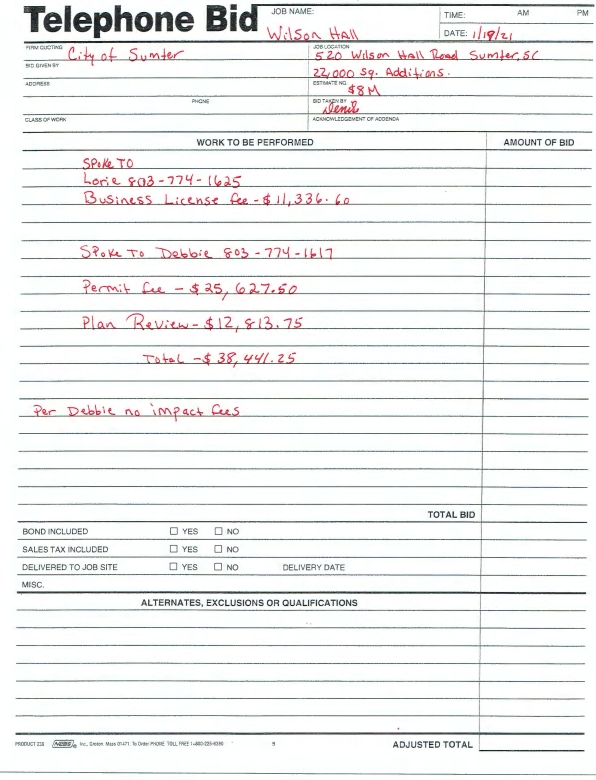 Telephone Bid
JOB NAME:
Wilson Hall
TIME: AM PM
DATE: 1/19/21
FIRM QUOTING City of Sumter
JOB LOCATION
520 Wilson Hall Road Sumter, SC
BID GIVEN BY
22,000 Sq. Additions.
ADDRESS
ESTIMATE NO.
$8M
PHONE
BID TAKEN BY
CLASS OF WORK
ACKNOWLEDGEMENT OF ADDENDA
WORK TO BE PERFORMED AMOUNT OF BID
Spoke To
Lorie 803-774-1625
Business License fee - $11,336.60
Spoke To Debbie 803-774-1617
Permit fee - $25,627.50
Plan Review - $12,813.75
Total - $38,441.25
Per Debbie no impact fees
TOTAL BID
BOND INCLUDED ☐ YES ☐ NO
SALES TAX INCLUDED ☐ YES ☐ NO
DELIVERED TO JOB SITE ☐ YES ☐ NO DELIVERY DATE
MISC.
ALTERNATES, EXCLUSIONS OR QUALIFICATIONS
PRODUCT 236 NEBS Inc., Groton, Mass 01471. To Order PHONE TOLL FREE 1-800-225-6380
ADJUSTED TOTAL